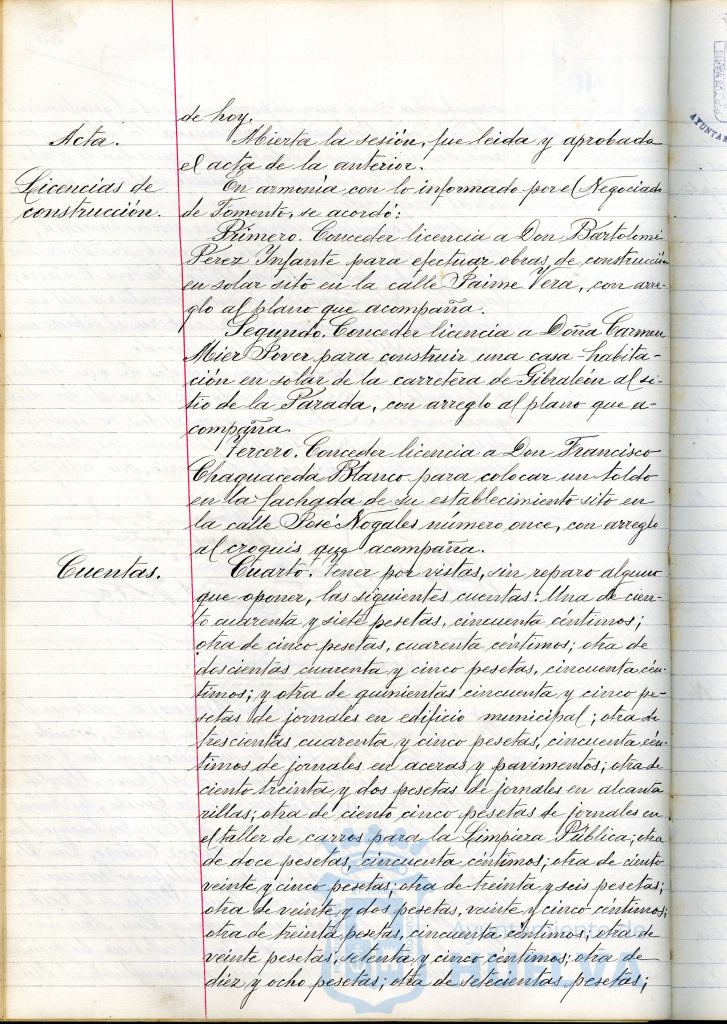 de hoy.
Acta.
Abierta la sesión, fue leida y aprobada
el acta de la anterior.
Licencias de
construcción.
En armonía con lo informado por el Negociado
de Fomento, se acordó:
Primero. Conceder licencia a Don Bartolomé
Pérez Infante para efectuar obras de construcción
en solar sito en la calle Jaime Vera, con arre-
glo al plano que acompaña.
Segundo. Conceder licencia a Doña Carmen
Mier Jover para construir una casa-habita-
ción en solar de la carretera de Gibraleón al si-
tio de la Parada, con arreglo al plano que a-
compaña.
Tercero. Conceder licencia a Don Francisco
Chaguaceda Blanco para colocar un toldo
en la fachada de su establecimiento sito en
la calle José Nogales número once, con arreglo
al croquis que acompaña.
Cuentas.
Cuarto. Tener por vistas, sin reparo alguno
que oponer, las siguientes cuentas: Una de cien-
to cuarenta y siete pesetas, cincuenta céntimos;
otra de cinco pesetas, cuarenta céntimos; otra de
doscientas cuarenta y cinco pesetas, cincuenta cén-
timos; y otra de quinientas cincuenta y cinco pe-
setas de jornales en edificio municipal; otra de
trescientas cuarenta y cinco pesetas, cincuenta cén-
timos de jornales en aceras y pavimentos; otra de
ciento treinta y dos pesetas de jornales en alcanta
rillas; otra de ciento cinco pesetas de jornales en
el taller de carros para la Limpieza Pública; otra
de doce pesetas, cincuenta céntimos; otra de ciento
veinte y cinco pesetas; otra de treinta y seis pesetas;
otra de veinte y dos pesetas, veinte y cinco céntimos;
otra de treinta pesetas, cincuenta céntimos; otra de
veinte pesetas, setenta y cinco céntimos; otra de
diez y ocho pesetas; otra de setecientas pesetas;
HUELVA